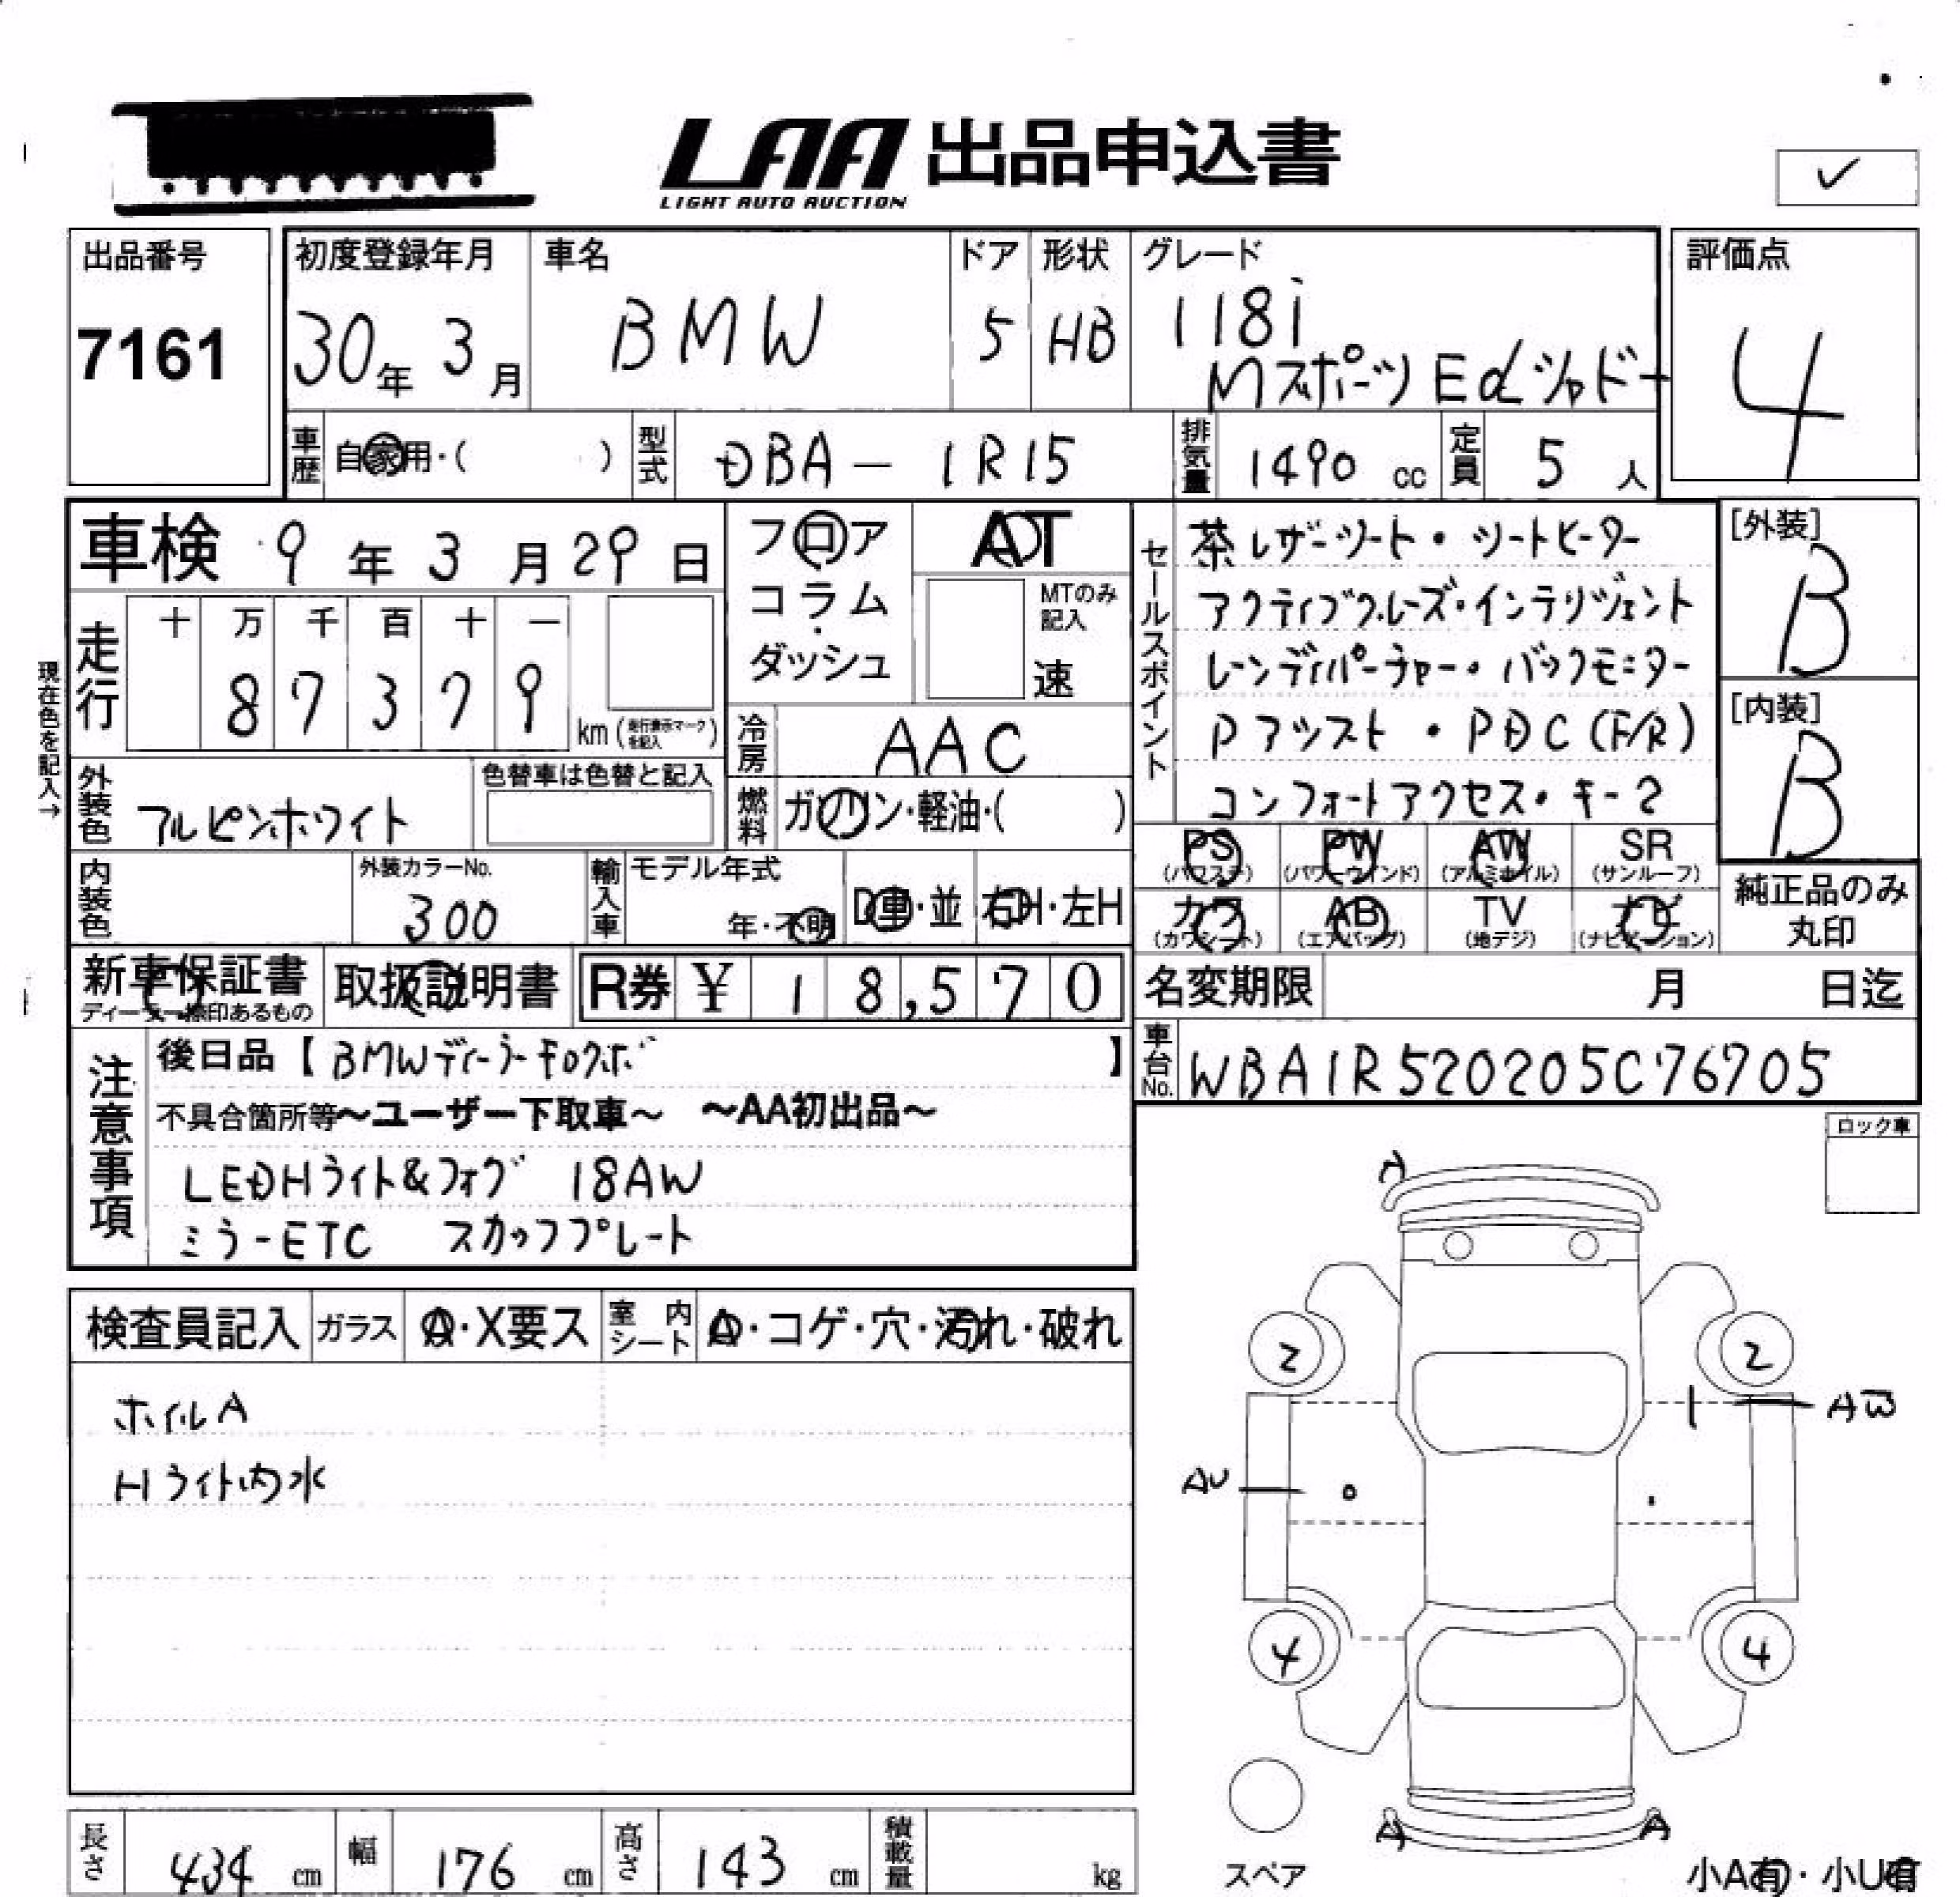 LAA 出品申込書
LIGHT AUTO AUCTION
✓
出品番号
7161
初度登録年月
30年 3月
車名
BMW
ドア
5
形状
HB
グレード
118i
MスポーツEdシャドー
評価点
4
車歴 自家用・( )
型式 DBA-1R15
排気量 1490 cc
定員 5 人
車検 9年 3月 29日
走行 十 万 千 百 十 一
8 7 3 7 9
km (走行表示マークを記入)
現在色を記入→
外装色 アルピンホワイト
色替車は色替と記入
内装色
外装カラーNo.
300
フロア
コラム
・
ダッシュ
AT
MTのみ記入
速
冷房 AAC
燃料 ガソリン・軽油・( )
輸入車 モデル年式
年・不明
D車・並 右H・左H
セールスポイント
茶レザーシート・シートヒーター
アクティブクルーズ・インテリジェント
レーンディパーチャー・バックモニター
Pアシスト・PDC(F/R)
コンフォートアクセス・キー2
[外装]
B
[内装]
B
PS (パワステ) PW (パワーウインド) AW (アルミホイル) SR (サンルーフ)
カワ (カワシート) AB (エアバッグ) TV (地デジ) ナビ (ナビゲーション)
純正品のみ
丸印
新車保証書
ディーラー捺印あるもの
取扱説明書
R券 ¥ 18,570
名変期限 月 日迄
車台No. WBA1R520205C76705
注意事項
後日品【BMWディーラーキロクボ】
不具合箇所等~ユーザー下取車~ ~AA初出品~
LEDHライト&フォグ 18AW
ミラーETC スカッフプレート
ロック車
検査員記入 ガラス A・X要ス 室内シート A・コゲ・穴・汚れ・破れ
ホイルA
Hライト内水
A
2 2
AW
AU
4 4
A A
スペア
小A有・小U有
長さ 434 cm 幅 176 cm 高さ 143 cm 積載量 kg